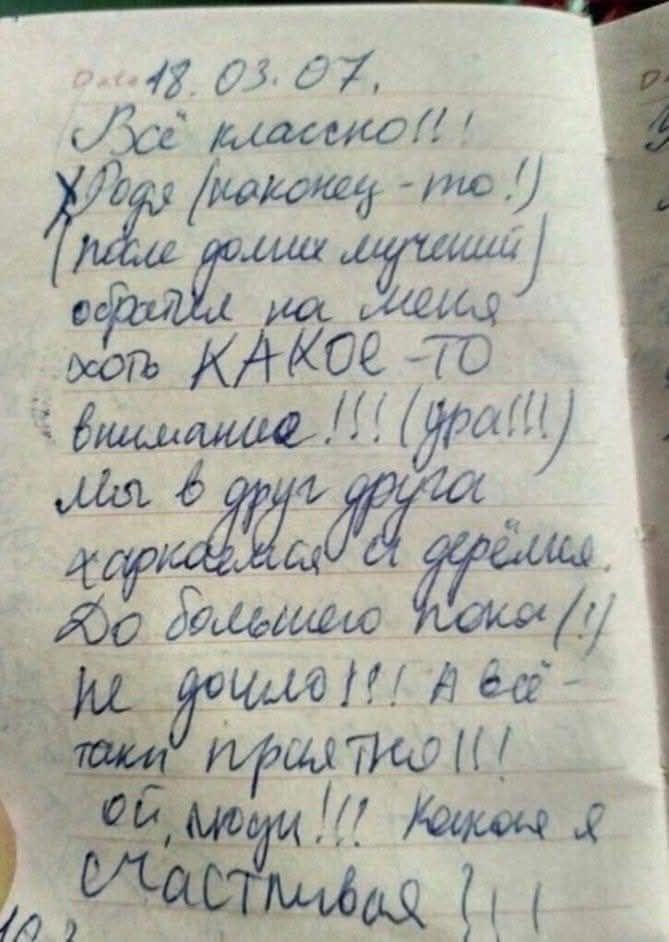 Date 18.03.07.
Всё классно!!!
Родя (наконец-то!)
(после долгих мучений)
обратил на меня
хоть КАКОЕ-ТО
внимание!!! (ура!!!)
Мы в друг друга
харкаемся и дерёмся.
До большего пока (!)
не дошло!!! А всё-
таки приятно!!!
ой, люди!!! Какая я
счастливая!!!